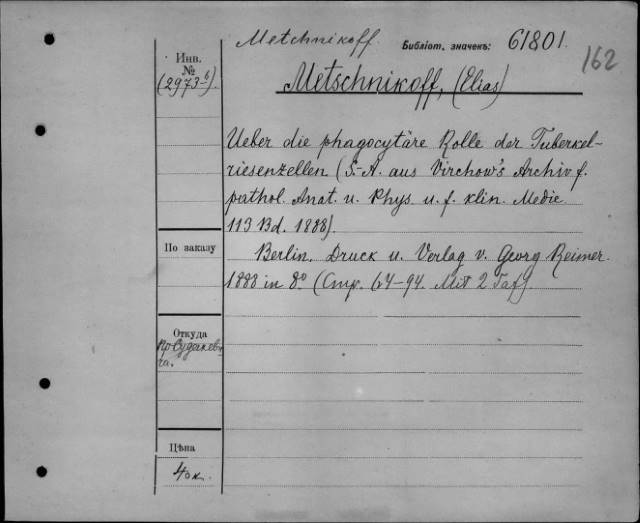 Metchnikoff.
Библіот. значекъ: 61801.
162
Инв.
№
(2973-6).
Metschnikoff, (Elias)
Ueber die phagocytäre Rolle der Tuberkel-
riesenzellen (S.-A. aus Virchow's Archiv f.
pathol. Anat. u. Phys u. f. klin. Medic
113 Bd. 1888).
По заказу
Berlin. Druck u. Verlag v. Georg Reimer.
1888 in 8º (Стр. 64-94. Mit 2 Taf).
Откуда
Цѣна
40 к.